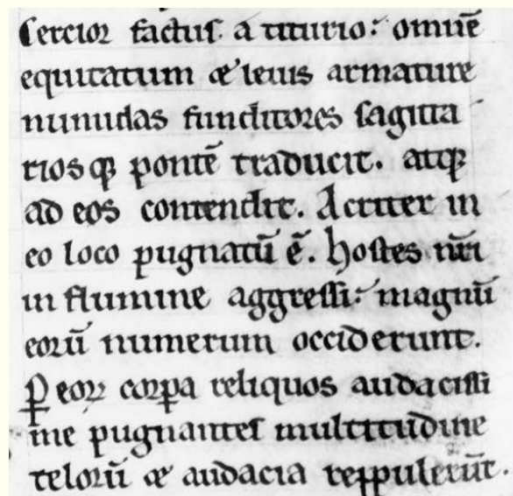 Cercior factus a titurio: omnē
equitatum & leuis armature
numidas funditores sagitta
riosqꝫ pontē traducit. atqꝫ
ad eos contendit. Acriter in
eo loco pugnatū ē. Hostes nr̄i
in flumine aggressi: magnū
eorū numerum occiderunt.
ꝑ eoꝝ corꝑa reliquos audacissi
me pugnantes multitudine
telorū & audacia reppulerūt.